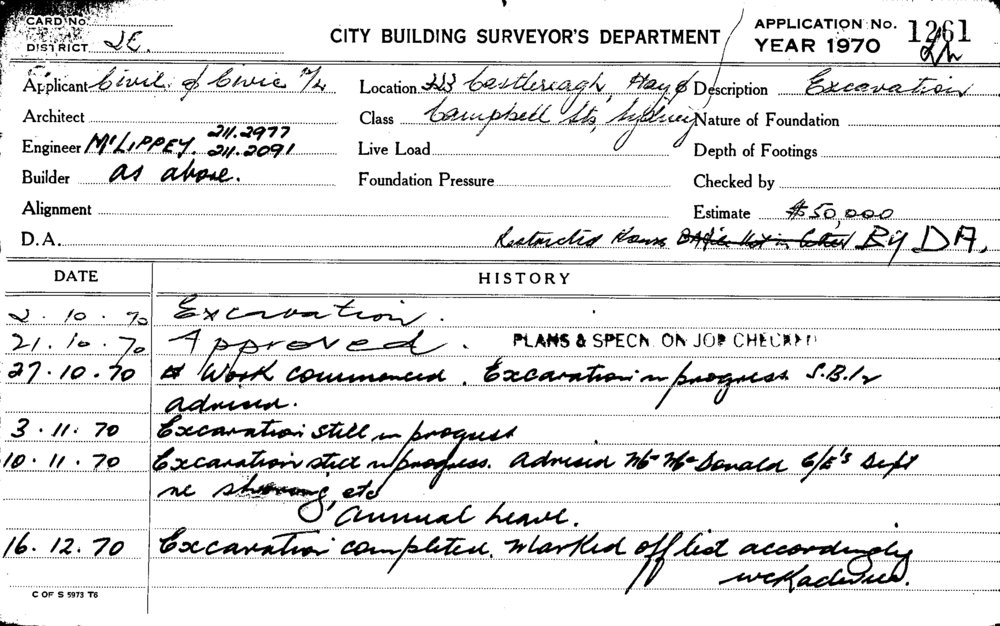 CARD No.
DISTRICT 2E.
CITY BUILDING SURVEYOR'S DEPARTMENT
APPLICATION No. 1261
YEAR 1970
Applicant Civil & Civic P/L Location 323 Castlereagh, Hay & Description Excavation
Architect Class Campbell Sts, Sydney Nature of Foundation
Engineer McLIPPEY. 211.2977 211.2091 Live Load Depth of Footings
Builder as above. Foundation Pressure Checked by
Alignment Estimate $50,000
D.A. Restricted Hours By DA.
DATE HISTORY
2.10.70 Excavation.
21.10.70 Approved. PLANS & SPECN. ON JOB CHECKED
27.10.70 Work commenced. Excavation in progress S.B.I
advised.
3.11.70 Excavation still in progress
10.11.70 Excavation still in progress. Advised Mr McDonald C/E's Dept
re shoring, etc
Annual Leave.
16.12.70 Excavation completed. Marked off list accordingly
C OF S 5973 T6